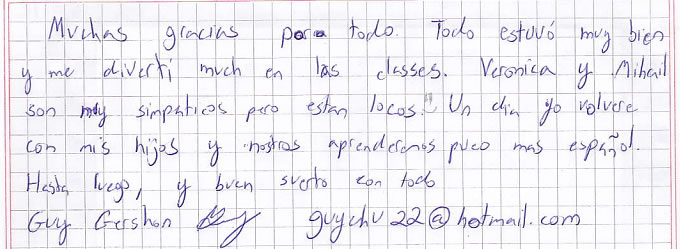 Muchas gracias para todo. Todo estuvó muy bien
y me diverti much en las classes. Veronica y Mihail
son muy simpaticos pero estan locos! Un dia yo volvere
con mis hijos y nostros aprenderemos puco mas español.
Hasta luego, y buen suerto con todo
Guy Gershon guychu22@hotmail.com